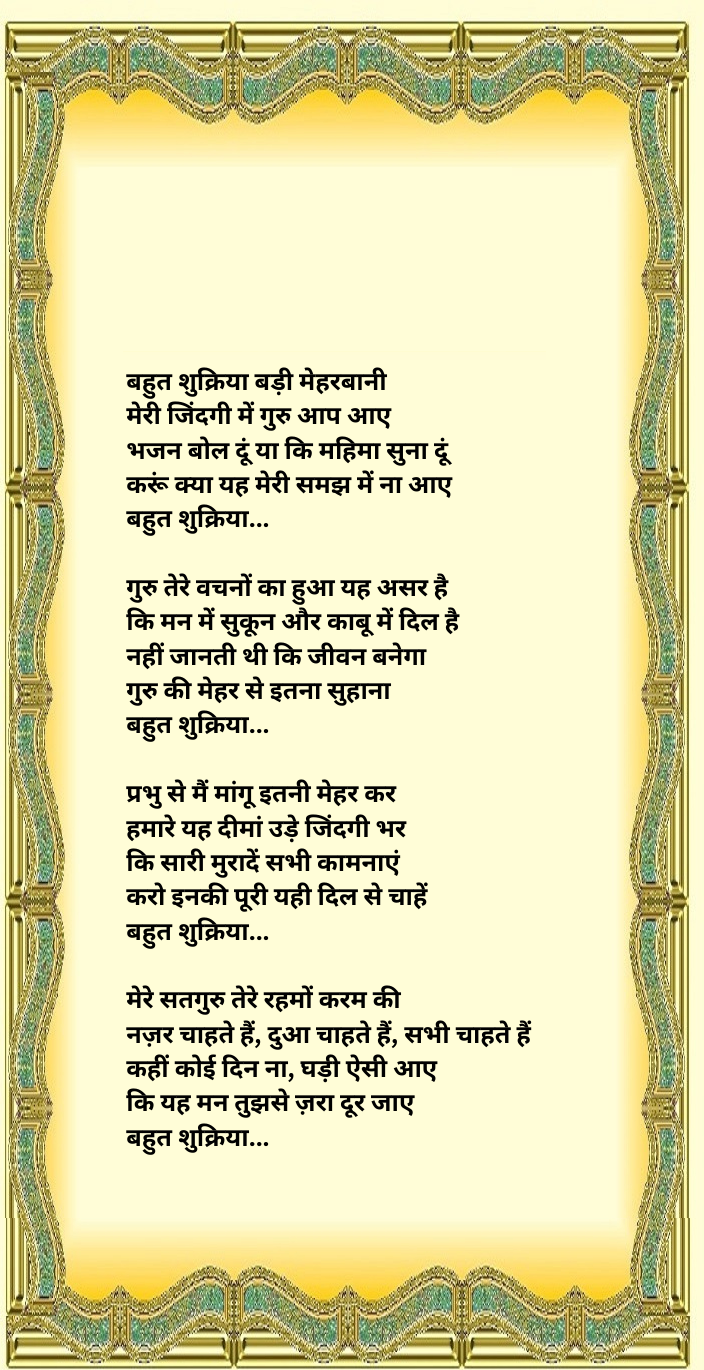 बहुत शुक्रिया बड़ी मेहरबानी
मेरी जिंदगी में गुरु आप आए
भजन बोल दूं या कि महिमा सुना दूं
करूं क्या यह मेरी समझ में ना आए
बहुत शुक्रिया...

गुरु तेरे वचनों का हुआ यह असर है
कि मन में सुकून और काबू में दिल है
नहीं जानती थी कि जीवन बनेगा
गुरु की मेहर से इतना सुहाना
बहुत शुक्रिया...

प्रभु से मैं मांगू इतनी मेहर कर
हमारे यह दीमां उड़े जिंदगी भर
कि सारी मुरादें सभी कामनाएं
करो इनकी पूरी यही दिल से चाहें
बहुत शुक्रिया...

मेरे सतगुरु तेरे रहमों करम की
नज़र चाहते हैं, दुआ चाहते हैं, सभी चाहते हैं
कहीं कोई दिन ना, घड़ी ऐसी आए
कि यह मन तुझसे ज़रा दूर जाए
बहुत शुक्रिया...